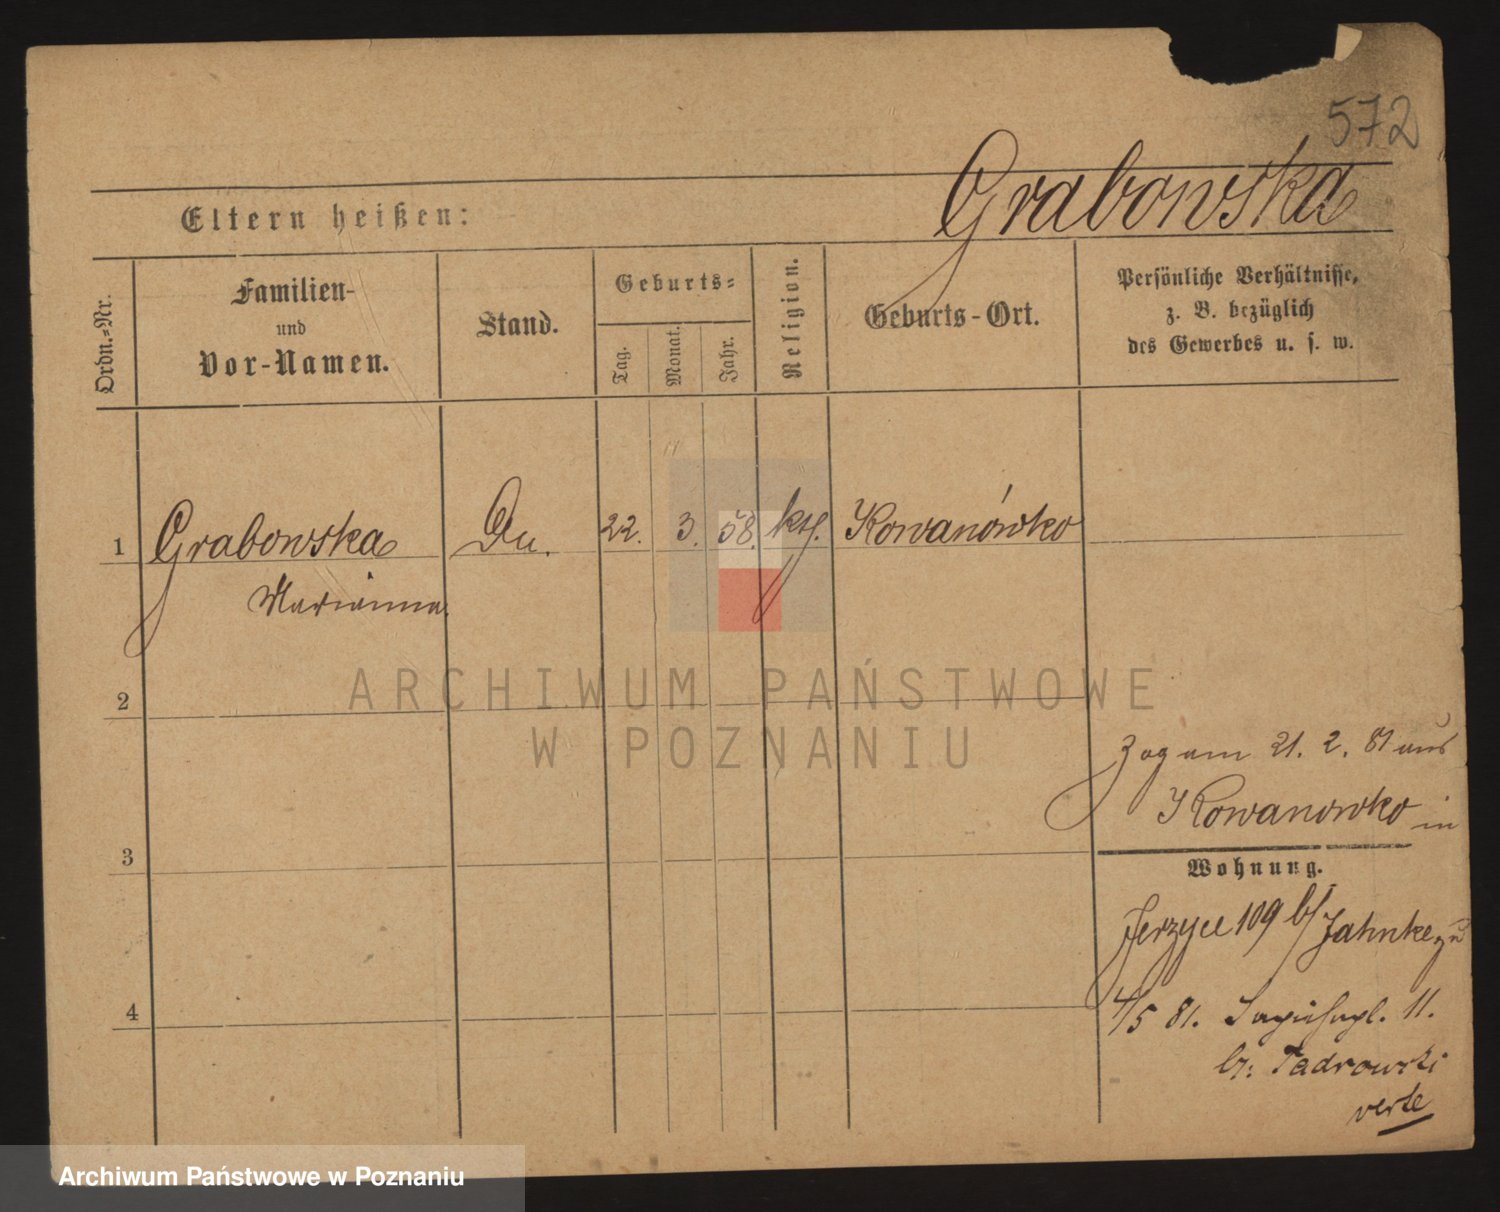 572
Grabowska
Eltern heißen:
Ordn.-Nr.
Familien-
und
Vor-Namen.
Stand.
Geburts-
Tag.
Monat.
Jahr.
Religion.
Geburts-Ort.
Persönliche Verhältnisse,
z. B. bezüglich
des Gewerbes u. s. w.
1 Grabowska 22. 3. 58. ktl. Kowanówko
Marianna
2
ARCHIWUM PAŃSTWOWE
W POZNANIU
Zog am 21. 2. 81 aus
Kowanowko in
3
Wohnung.
Jerzyce 109 b/ Jahnke
4
4/5 81. 11.
bz. Tadrowski
verte
Archiwum Państwowe w Poznaniu